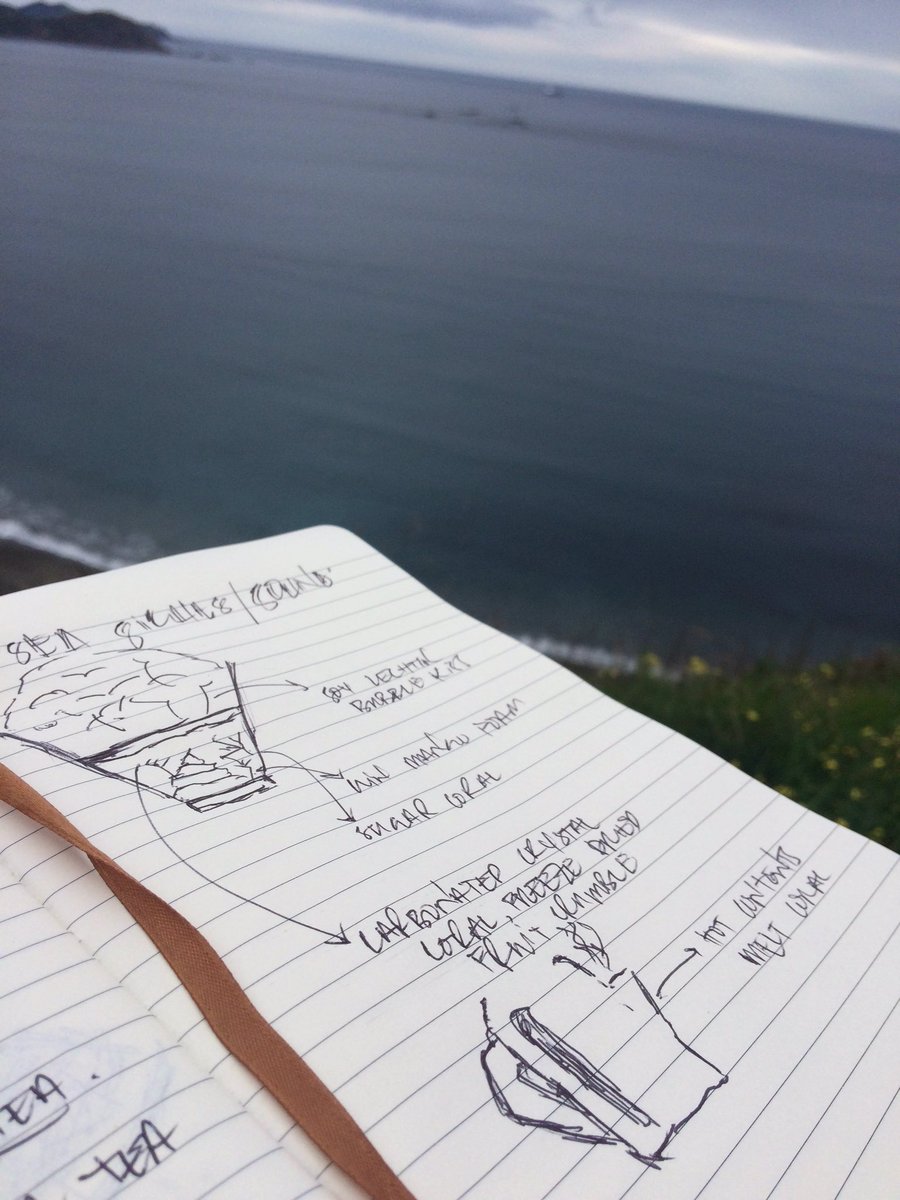 SEA / SOUND
SOY LECHTIN
BUBBLE
FOAM
SUGAR CORAL
CARBONATED CRYSTAL
CORAL, FREEZE DRIED
FRUIT CRUMBLE
HOT CONTENTS
MELT CORAL